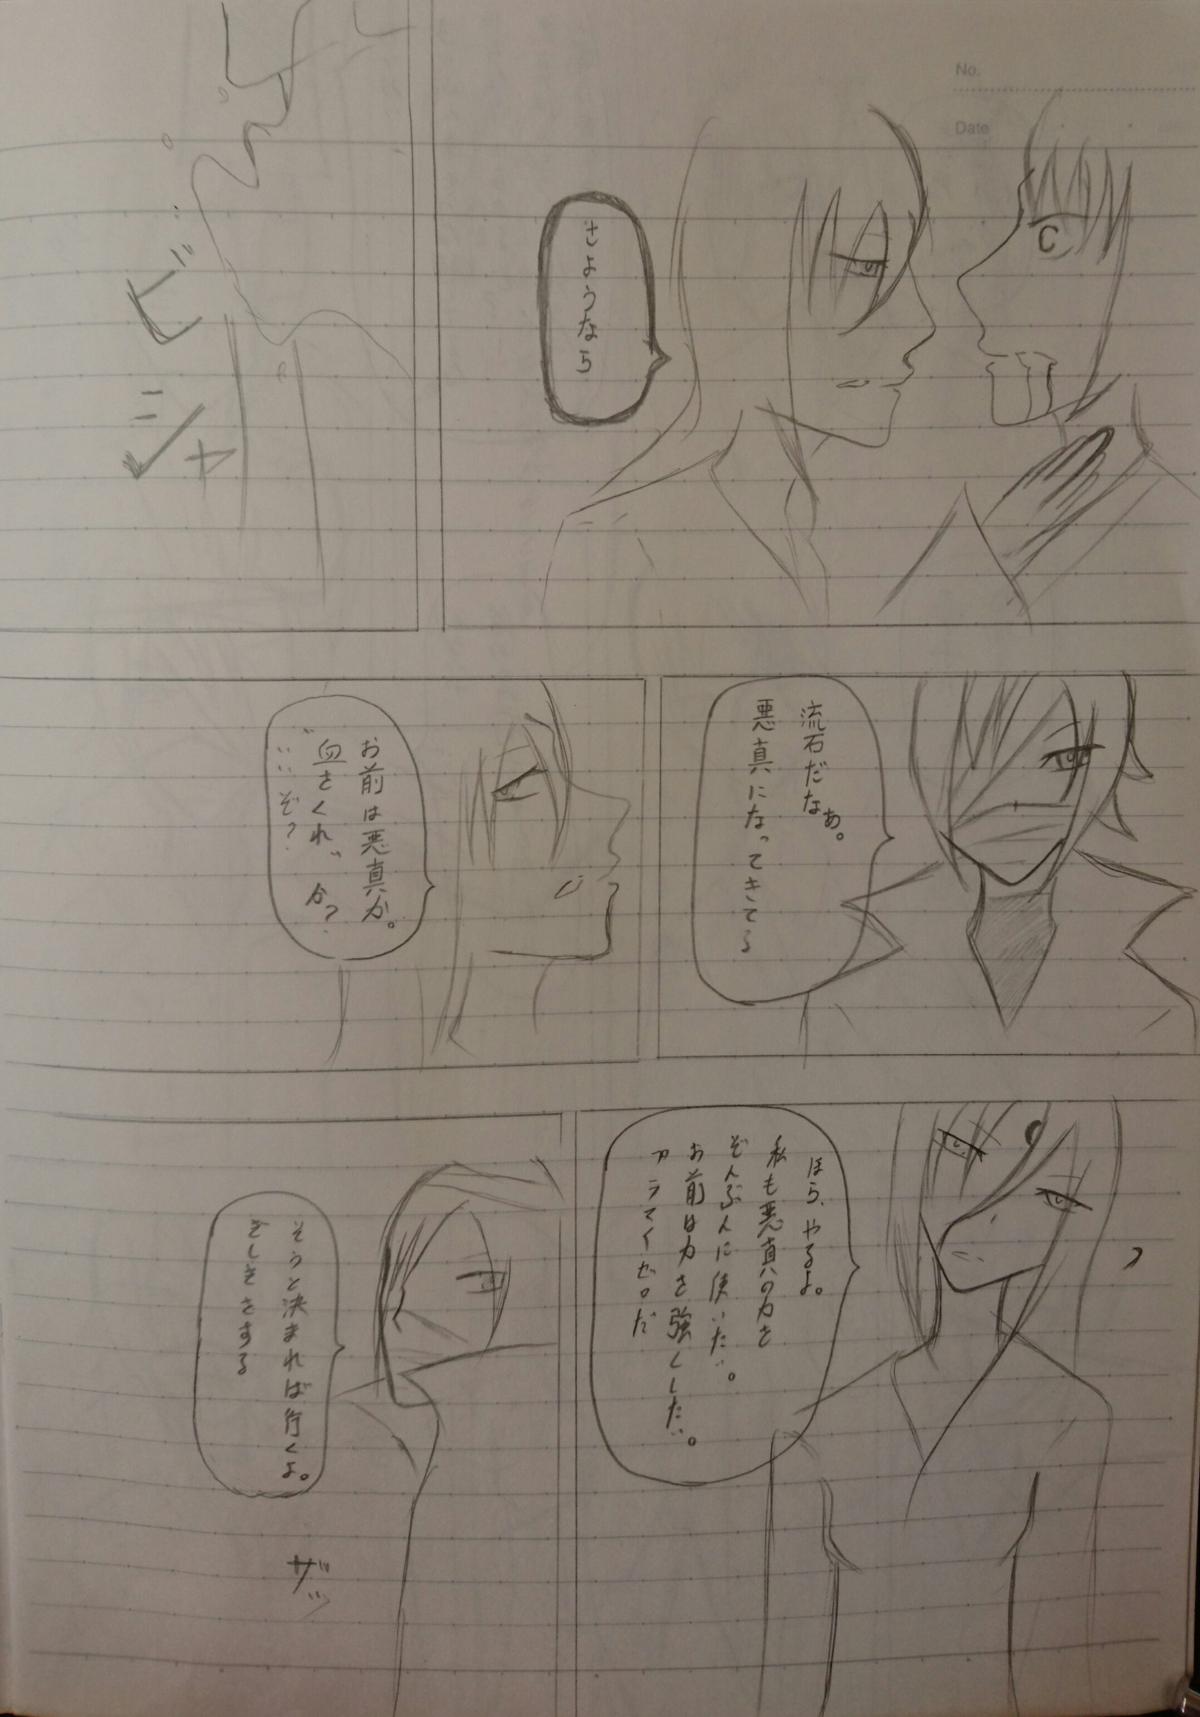 No.
Date
さようなら
ビシャ
流石だなぁ。
悪真になってきてる
お前は悪真か。
"血をくれ" か?
いいぞ?
ほら、やるよ。
私も悪真の力を
ぞんぶんに使いたい。
お前は力を強くしたい。
カラマイゼロだ
そうと決まれば行くよ。
ぎしきをする
ザッ